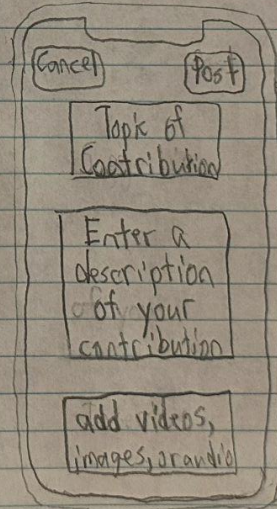 Cancel Post
Topic of
Contribution
Enter a
description
of your
contribution
add videos,
images, or audio